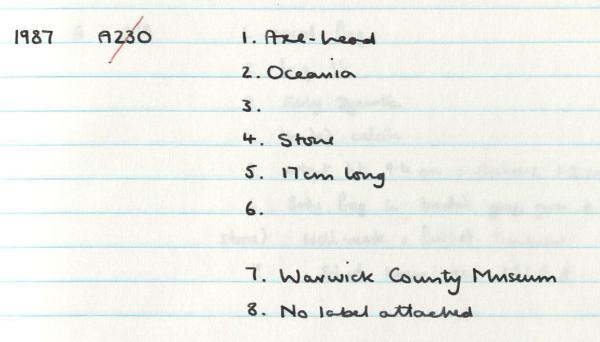 1987 A230 1. Axe-head
2. Oceania
3.
4. Stone
5. 17cm long
6.
7. Warwick County Museum
8. No label attached